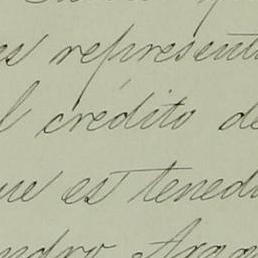 es represent
l crédito de
ue es tened
ndro Ara